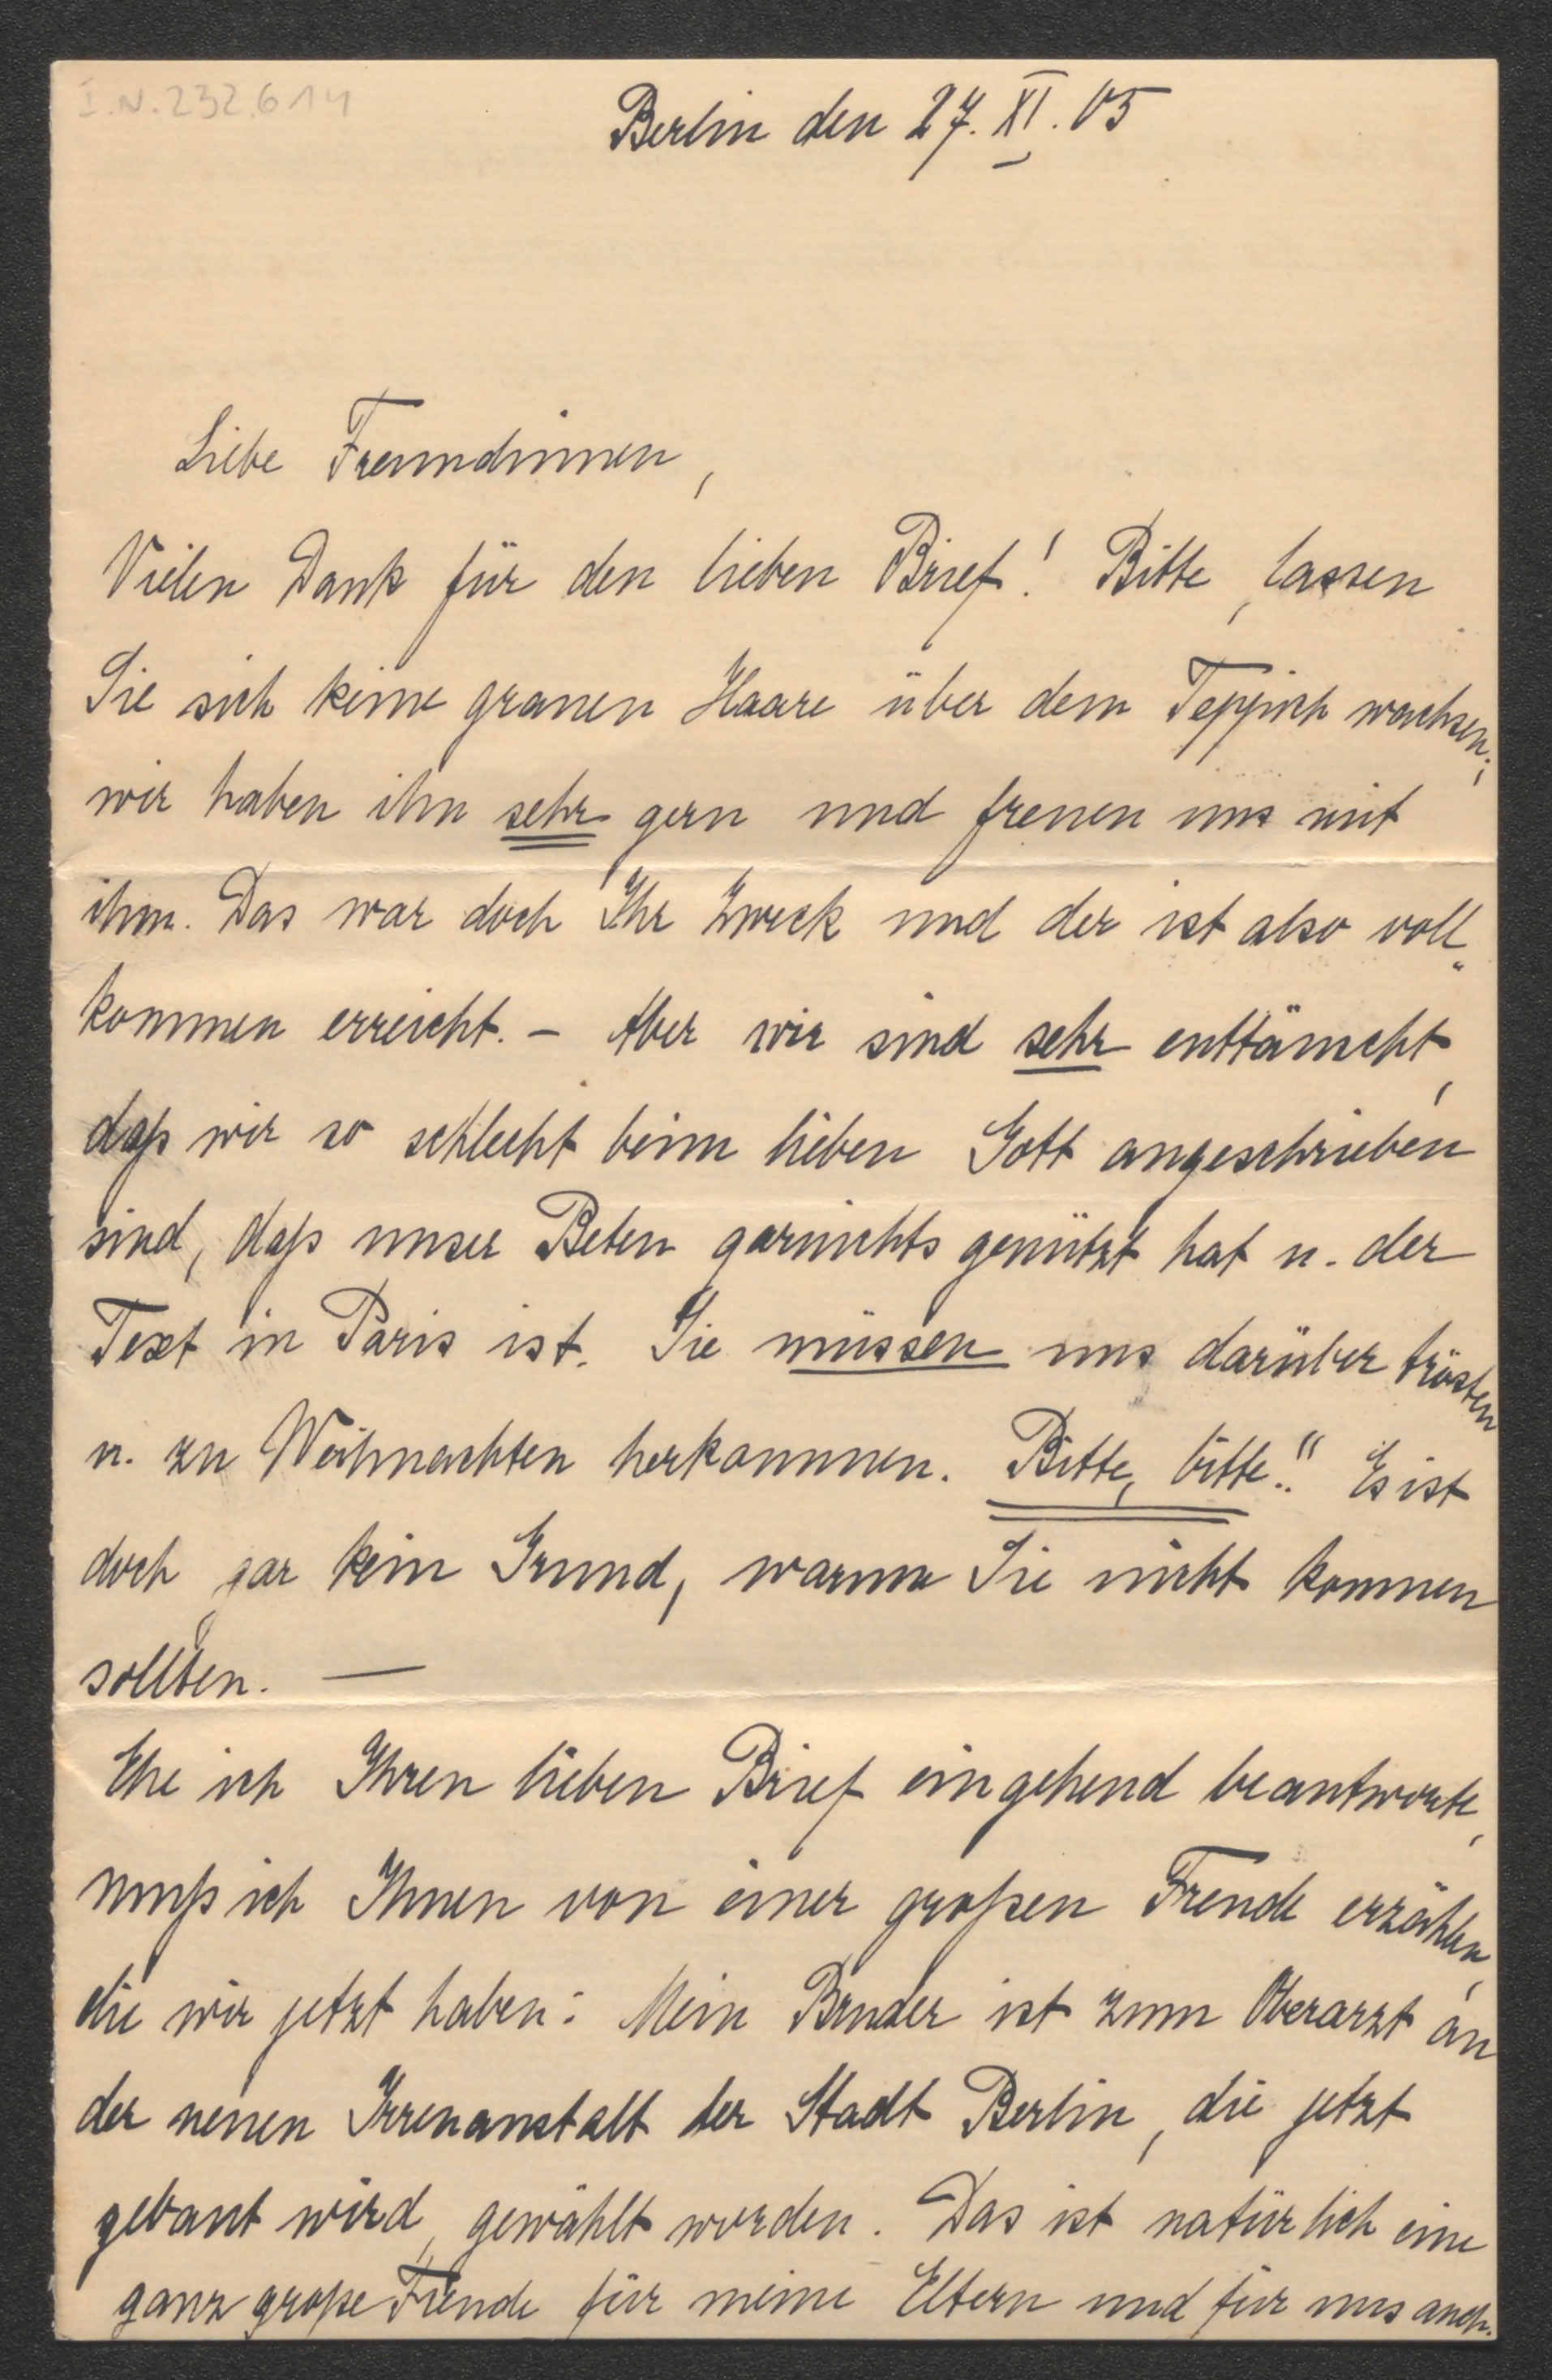 I.N.232.614
Berlin den 27. XI. 05
Liebe Freundinnen,
Vielen Dank für den lieben Brief! Bitte, lassen
Sie sich keine grauen Haare über dem Teppich wachsen;
wir haben ihn sehr gern und freuen uns mit
ihm. Das war doch Ihr Zweck und der ist also voll„
kommen erreicht. – Aber wir sind sehr enttäuscht,
daß wir so schlecht beim lieben Gott angeschrieben
sind, daß unser Beten garnichts genützt hat u. der
Text in Paris ist. Sie müssen uns darüber trösten
u. zu Weihnachten herkommen. Bitte, bitte!! Es ist
doch gar kein Grund, warum Sie nicht kommen
sollten. —
Ehe ich Ihren lieben Brief eingehend beantworte,
muß ich Ihnen von einer großen Freude erzählen,
die wir jetzt haben: Mein Bruder ist zum Oberarzt an
der neuen Irrenanstalt der Stadt Berlin, die jetzt
gebaut wird, gewählt worden. Das ist natürlich eine
ganz große Freude für meine Eltern und für uns auch.